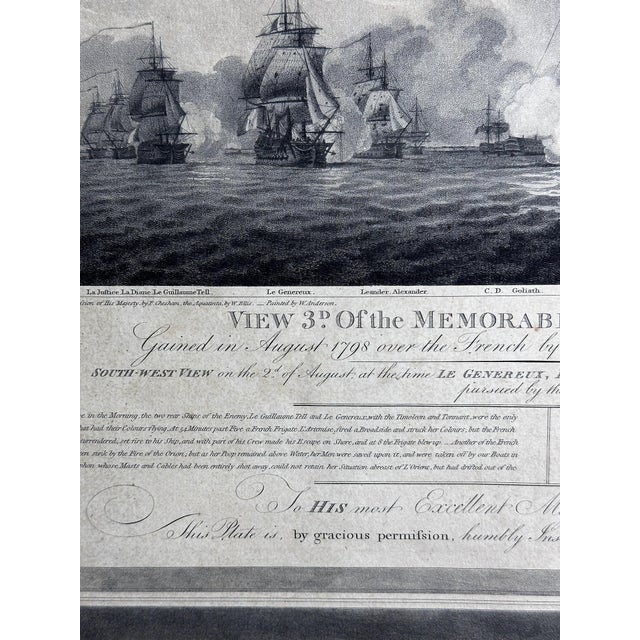 La Justice La Diane Le Guillaume Tell. Le Genereux. Leander. Alexander. C. D. Goliath.
sion of His Majesty, by F. Chesham, the Aquatinta, by W. Ellis. — Painted by W. Anderson.
VIEW 3.D Of the MEMORABL
Gained in August 1798 over the French by
SOUTH-WEST VIEW on the 2.d of August, at the time LE GENEREUX,
pursued by th
e in the Morning, the two rear Ships of the Enemy, Le Guillaume Tell and Le Genereux, with the Timoleon and Tonnant, were the only
hat had their Colours flying. At 54 Minutes past Five a French Frigate, L'Artemise, fired a Broadside and struck her Colours; but the French
surrendered, set fire to his Ship, and with part of his Crew made his Escape on Shore, and at 8 the Frigate blew up.... Another of the French
en sunk by the Fire of the Orion; but as her Poop remained above Water, her Men were saved upon it, and were taken off by our Boats in
phon whose Masts and Cables had been entirely shot away, could not retain her Situation abreast of L'Orient, but had drifted out of the
To HIS most Excellent M
This Plate is, by gracious permission, humbly Ins